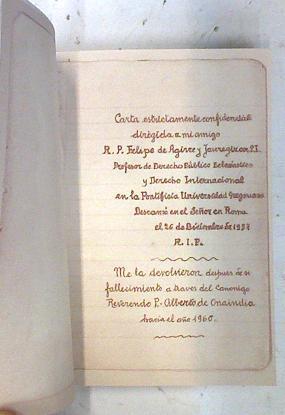 Carta estrictamente confidencial
dirigida a mi amigo
R. P. Felipe de Agirre y Jauregizar
Profesor de Derecho Público Eclesiástico
y Derecho Internacional
en la Pontificia Universidad Gregoriana
Descansó en el Señor en Roma
el 26 de Diciembre de
R. I. P.
Me la devolvieron después de su
fallecimiento a través del Canonigo
Reverendo P. Alberto de Onaindia
hacia el año 1960.